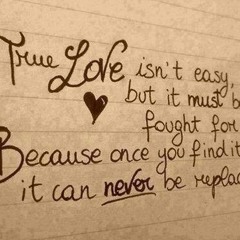 True Love isn't easy,
but it must b
fought for
Because once you find it
it can never be replac